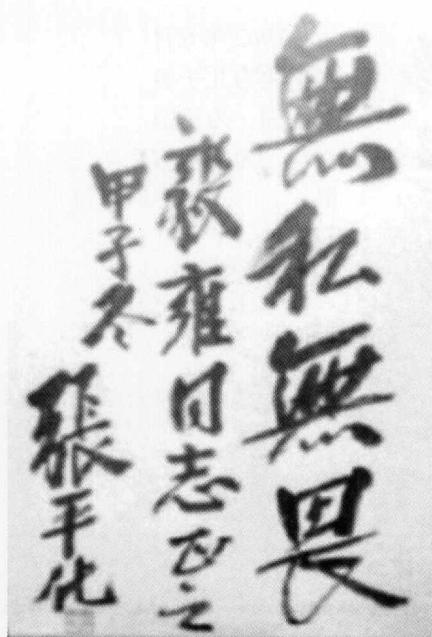 無私無畏
雍同志正之
甲子冬
張平化